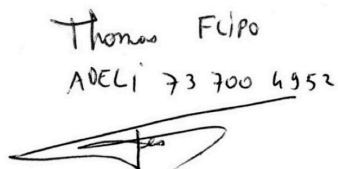 Thomas Flipo
ADELI 73 700 4952